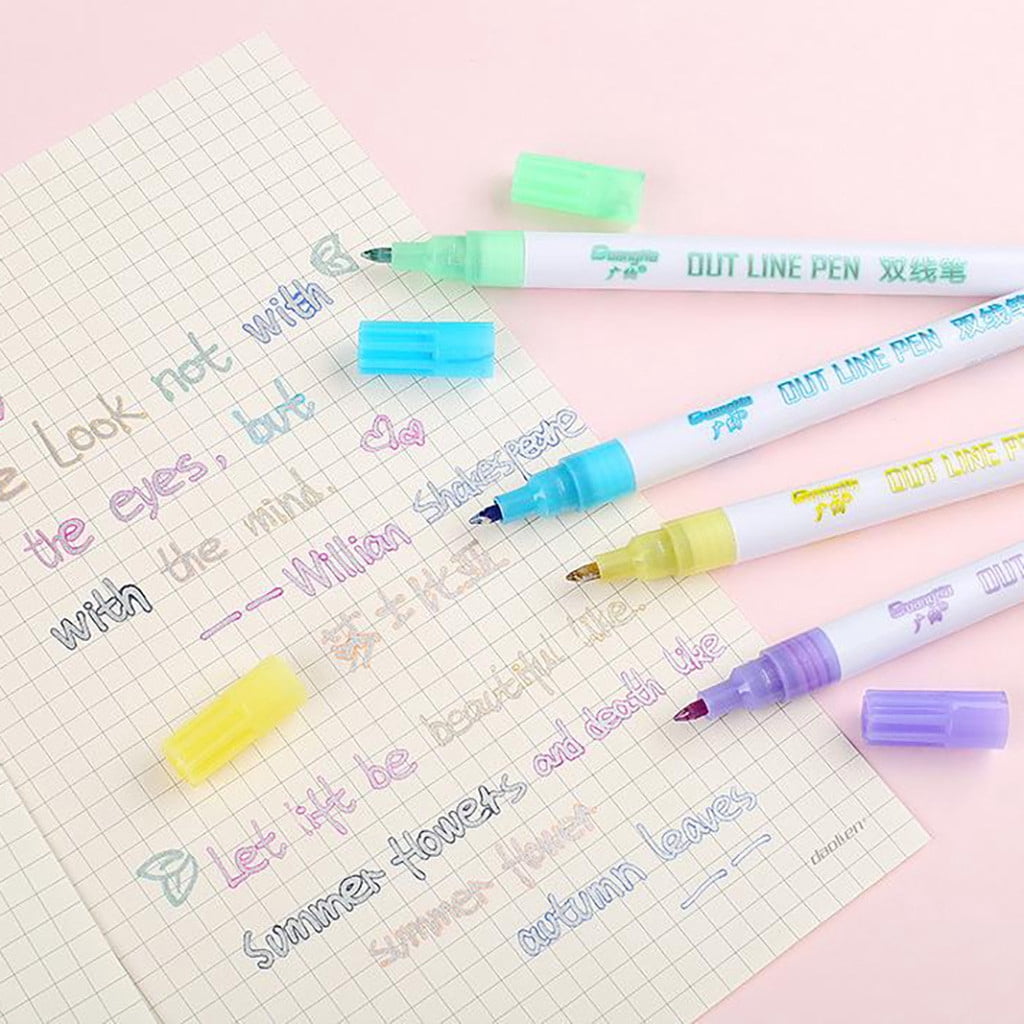 Guangna
广纳®
OUT LINE PEN 双线笔
Guangna
广纳
OUT LINE PEN 双线笔
Guangna
广纳
OUT LINE PE
Guangna
广纳
OUT
Look not with
the eyes, but
with the mind.
——Willian Shakespeare
士比亚
Let lift be beautiful like..
summer flowers and death like
summer flower
autumn leaves